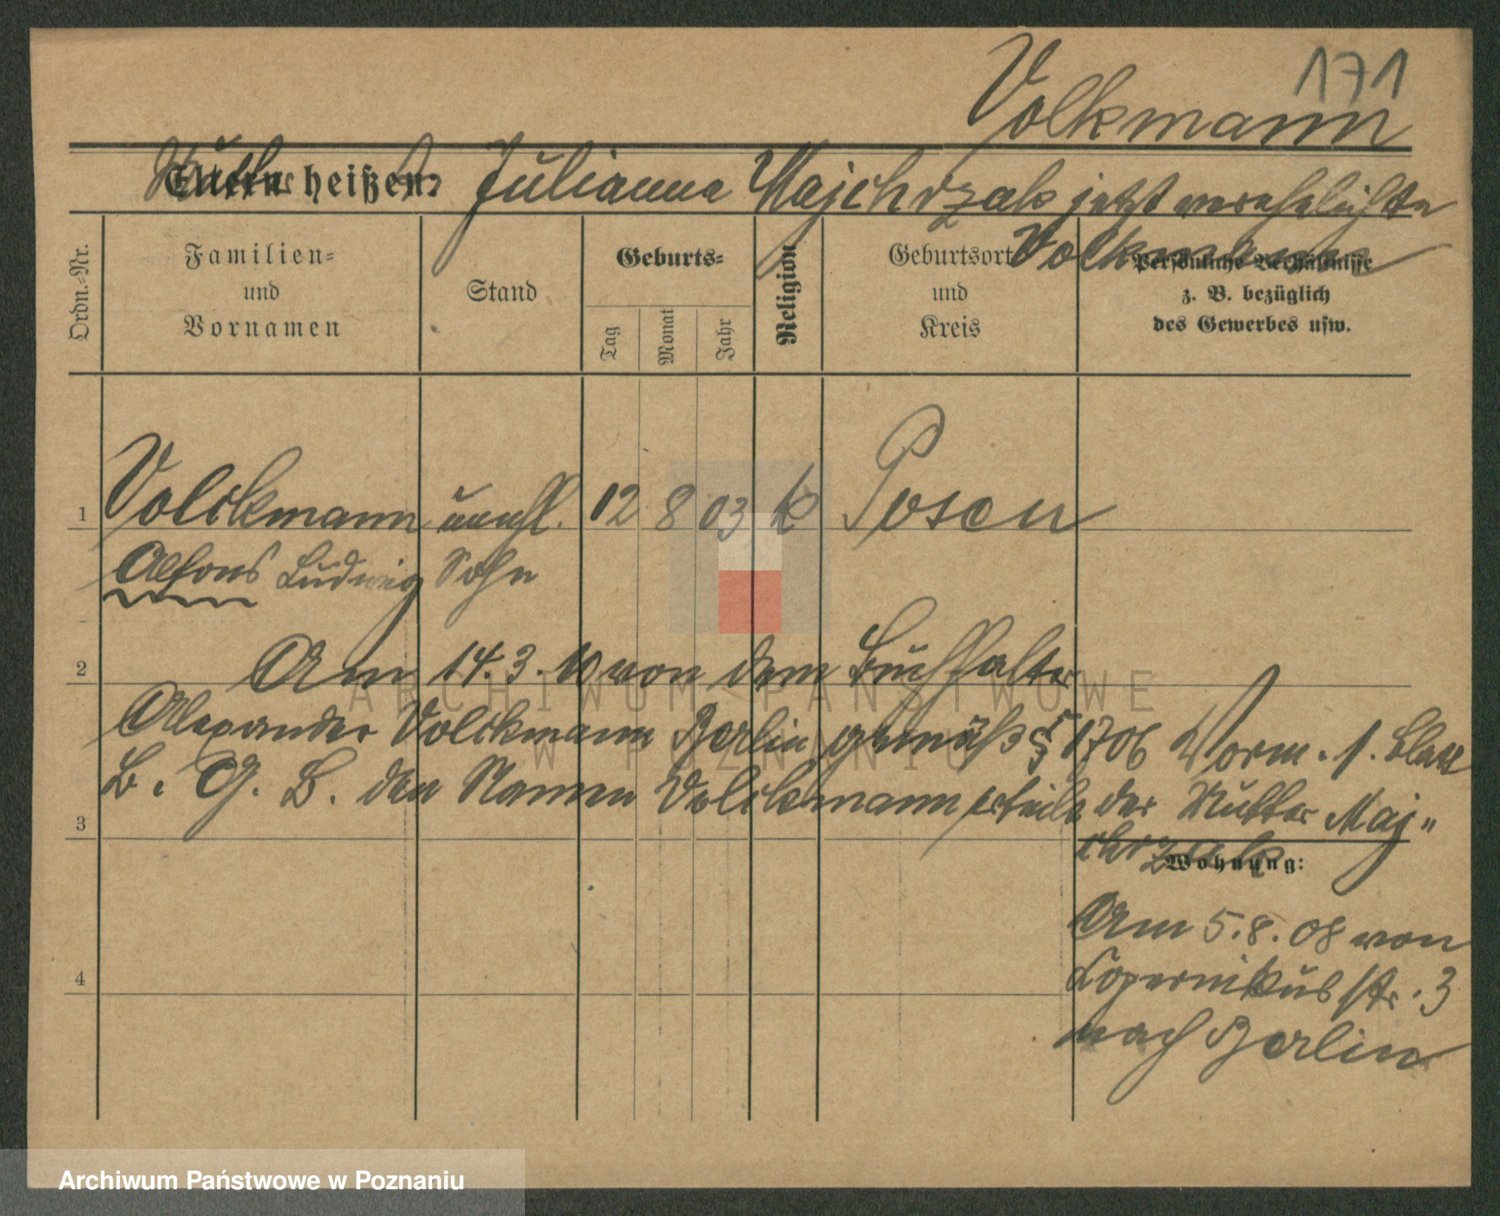 171
Volkmann
Eltern heißen: Julianna Majchrzak jetzt verehelichte
Volkmann
Ordn.-Nr.
Familien-
und
Vornamen
Stand
Geburts-
Tag
Monat
Jahr
Religion
Geburtsort
und
Kreis
Persönliche Verhältnisse
z. B. bezüglich
des Gewerbes usw.
1 Volckmann unehl. 12 8 03 k Posen
Alfons Ludwig Sohn
2 Am 14.3.10 von dem Buchhalter
Alexander Volckmann Berlin gemäß § 1706 Vorm. 1. Blatt
B. G. B. den Namen Volckmann erteilt der Mutter Maj-
3 chrzak
Wohnung:
Am 5.8.08 von
Kopernikus str. 3
nach Berlin
4
ARCHIWUM PAŃSTWOWE
W POZNANIU
Archiwum Państwowe w Poznaniu